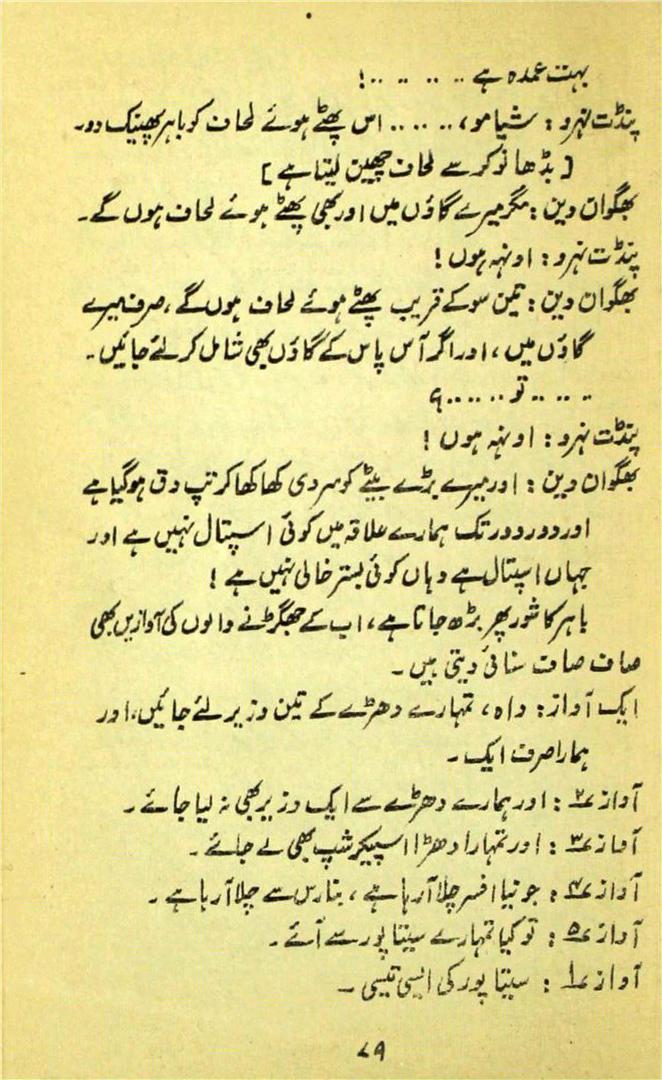 بہت عمدہ ہے .. .. .. ..!
پنڈت نہرو : شیامو، .. .. .. اس پھٹے ہوئے لحاف کو باہر پھینک دو۔
[ بڈھا نوکر سے لحاف چھین لیتا ہے ]
بھگوان دین : مگر میرے گاؤں میں اور بھی پھٹے ہوئے لحاف ہوں گے۔
پنڈت نہرو : اونہہ ہوں !
بھگوان دین : تین سو کے قریب پھٹے ہوئے لحاف ہوں گے ، صرف میرے
گاؤں میں ، اور اگر آس پاس کے گاؤں بھی شامل کر لئے جائیں۔
.. .. .. تو .. .. .. ؟
پنڈت نہرو : اونہہ ہوں !
بھگوان دین : اور میرے بڑے بیٹے کو سردی کھا کھا کر تپ دق ہوگیا ہے
اور دور دور تک ہمارے علاقہ میں کوئی اسپتال نہیں ہے اور
جہاں اسپتال ہے وہاں کوئی بستر خالی نہیں ہے !
باہر کا شور پھر بڑھ جاتا ہے ، اب کے جھگڑنے والوں کی آوازیں بھی
صاف صاف سنائی دیتی ہیں ۔
ایک آواز : واہ ، تمہارے دھڑے کے تین وزیر لئے جائیں، اور
ہمارا صرف ایک ۔
آواز ۲ : اور ہمارے دھڑے سے ایک وزیر بھی نہ لیا جائے ۔
آواز ۳ : اور تمہارا دھڑا اسپیکر شپ بھی لے جائے ۔
آواز ۴ : جو نیا افسر چلا آرہا ہے ، بنارس سے چلا آرہا ہے ۔
آواز ۵ : تو کیا تمہارے سیتا پور سے آئے ۔
آواز ۱ : سیتا پور کی ایسی تیسی ۔
۷۹